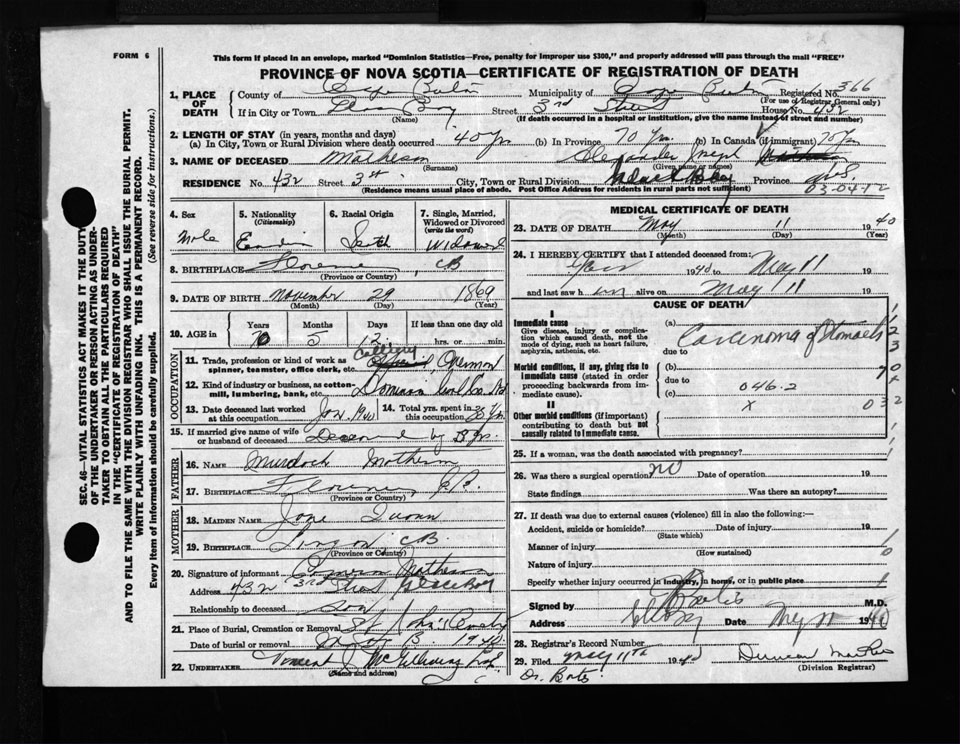 FORM 6
This form if placed in an envelope, marked "Dominion Statistics—Free, penalty for improper use $300," and properly addressed will pass through the mail "FREE"
PROVINCE OF NOVA SCOTIA—CERTIFICATE OF REGISTRATION OF DEATH
1. PLACE OF DEATH
County of Cape Breton Municipality of Cape Breton Registered No. 366
(For use of Registrar General only)
If in City or Town Glace Bay Street 3rd Street House No. 432
(Name) (If death occurred in a hospital or institution, give the name instead of street and number)
2. LENGTH OF STAY (in years, months and days)
(a) In City, Town or Rural Division where death occurred 40 yrs (b) In Province 70 Yrs. (b) In Canada (if immigrant) 70 Yrs
3. NAME OF DECEASED Matheson Alexander Joseph
(Surname) (Given name or names)
RESIDENCE No. 432 Street 3rd St City, Town or Rural Division Glace Bay Province N.S.
(Residence means usual place of abode. Post Office Address for residents in rural parts not sufficient) 03-04-12
4. Sex
Male
5. Nationality
(Citizenship)
6. Racial Origin
7. Single, Married, Widowed or Divorced
(write the word)
Widowed
8. BIRTHPLACE Florence CB
(Province or Country)
9. DATE OF BIRTH November 29 1869
(Month) (Day) (Year)
10. AGE in Years Months Days If less than one day old
70 5 12 hrs. or min.
OCCUPATION
11. Trade, profession or kind of work as spinner, teamster, office clerk, etc. Colliery
12. Kind of industry or business, as cotton-mill, lumbering, bank, etc. Dominion Coal Co. Ltd
13. Date deceased last worked at this occupation Jan 1940 14. Total yrs. spent in this occupation
15. If married give name of wife or husband of deceased
FATHER
16. NAME Murdoch Matheson
17. BIRTHPLACE Florence C.B.
MOTHER
18. MAIDEN NAME Jane
19. BIRTHPLACE Lingan CB
(Province or Country)
20. Signature of informant Cameron Matheson
Address 432 3rd Street Glace Bay
Relationship to deceased son
21. Place of Burial, Cremation or Removal St
Date of burial or removal May 13 1940
22. UNDERTAKER Vincent J McGillivray
(Name and address)
MEDICAL CERTIFICATE OF DEATH
23. DATE OF DEATH May 11 1940
(Month) (Day) (Year)
24. I HEREBY CERTIFY that I attended deceased from:
1940 to May 11 19
and last saw him alive on May 11 19
CAUSE OF DEATH
I
Immediate cause
Give disease, injury or complication which caused death, not the mode of dying, such as heart failure, asphyxia, asthenia, etc.
(a) Carcinoma of Stomach
due to
Morbid conditions, if any, giving rise to immediate cause (stated in order proceeding backwards from immediate cause)
(b)
due to
(c) 046.2
II
Other morbid conditions (if important) contributing to death but not causally related to immediate cause.
X
25. If a woman, was the death associated with pregnancy?
26. Was there a surgical operation? no Date of operation 19
State findings Was there an autopsy?
27. If death was due to external causes (violence) fill in also the following:—
Accident, suicide or homicide? Date of injury 19
(State which)
Manner of injury
(How sustained)
Nature of injury
Specify whether injury occurred in industry, in home, or in public place
Signed by M.D.
Address Gl Bay Date May 11 1940
28. Registrar's Record Number
29. Filed May 11th 1940 Duncan MacRae
(Division Registrar)
Dr. Bates
SEC. 46—VITAL STATISTICS ACT MAKES IT THE DUTY OF THE UNDERTAKER OR PERSON ACTING AS UNDERTAKER TO OBTAIN ALL THE PARTICULARS REQUIRED IN THE "CERTIFICATE OF REGISTRATION OF DEATH" AND TO FILE THE SAME WITH THE DIVISION REGISTRAR WHO SHALL ISSUE THE BURIAL PERMIT.
WRITE PLAINLY WITH UNFADING INK. THIS IS A PERMANENT RECORD.
Every item of information should be carefully supplied. (See reverse side for instructions.)